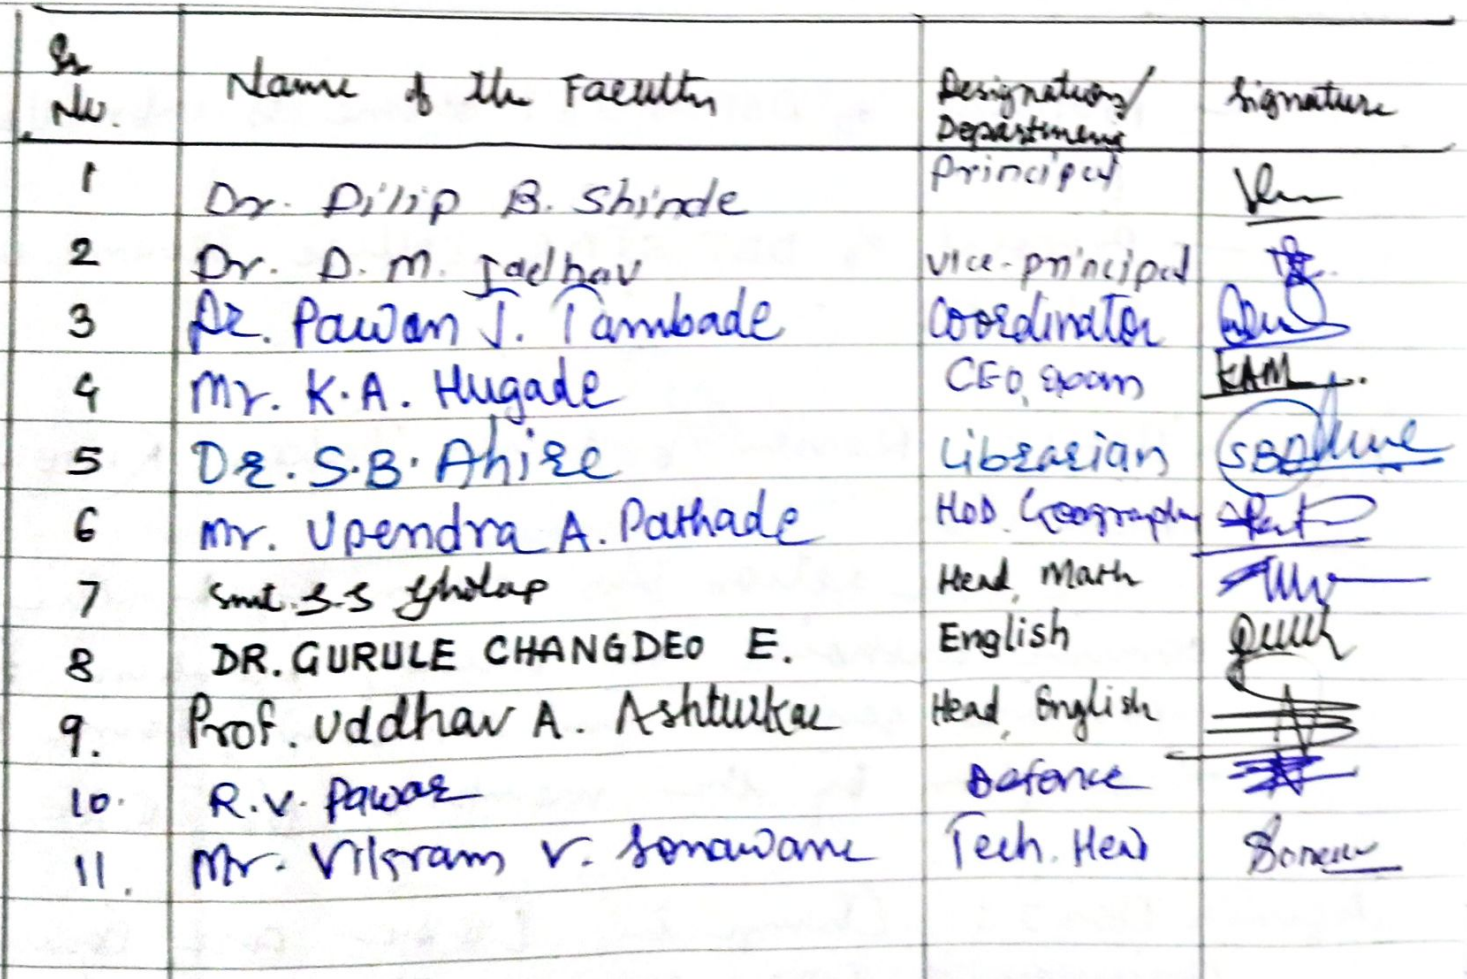 Sr No. Name of the Faculty Designation/ Department Signature
1 Dr. Dilip B. Shinde Principal
2 Dr. D. M. Jadhav Vice-principal
3 Dr. Pawan J. Tambade Coordinator
4 Mr. K.A. Hugade CEO, Exam KAM
5 Dr. S.B. Ahire Librarian SBAhire
6 Mr. Upendra A. Pathade HoD. Geography
7 Smt. S.S Gholap Head, Math
8 DR. GURULE CHANGDEO E. English
9. Prof. Uddhav A. Ashturkar Head, English
10. R.V. Pawar Defence
11. Mr. Vikram V. Sonawane Tech. Head